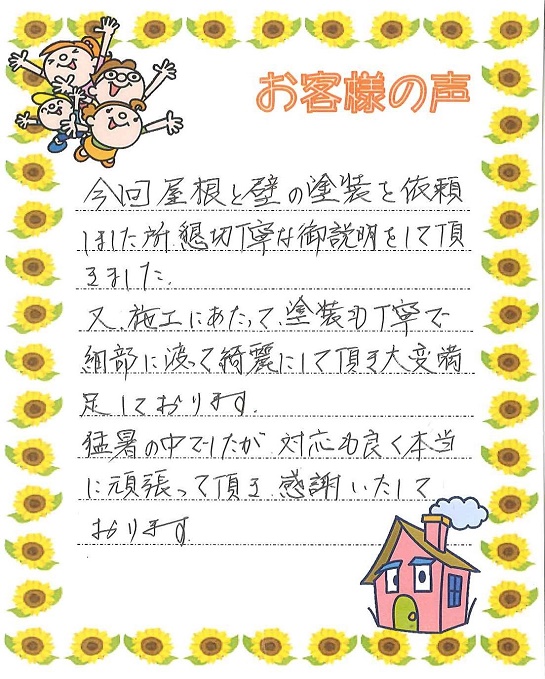 お客様の声
今回屋根と壁の塗装を依頼
しました所、懇切丁寧な御説明をして頂
きました。
又、施工にあたって、塗装も丁寧で
細部に渡って綺麗にして頂き大変満
足しております。
猛暑の中でしたが、対応も良く本当
に頑張って頂き、感謝いたして
おります。